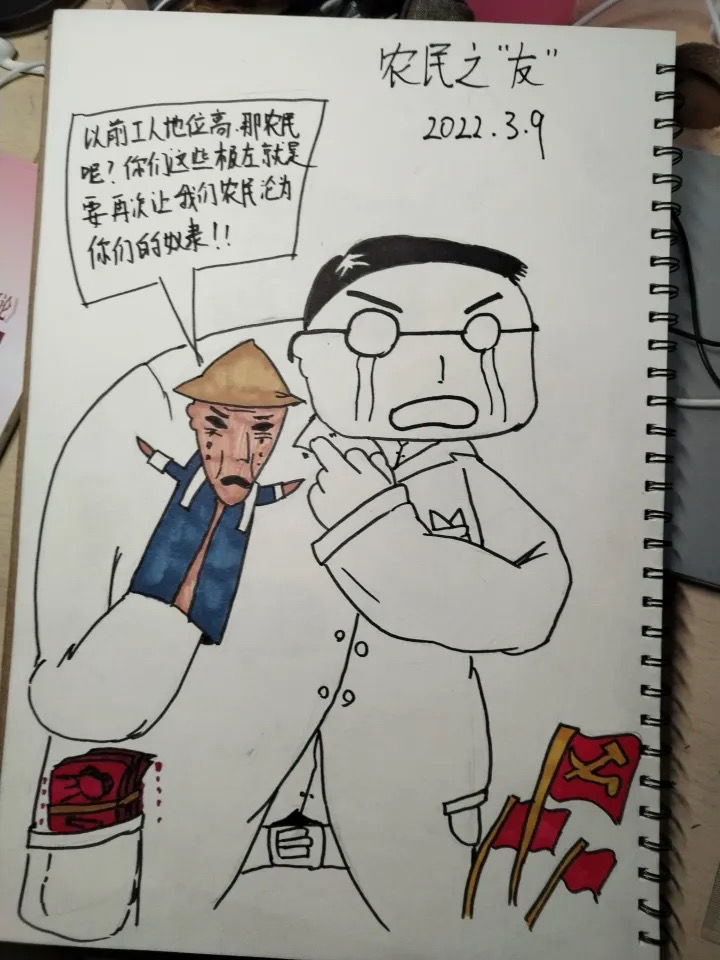 农民之"友"
2022.3.9
以前工人地位高、那农民
呢？你们这些极左就是
要再次让我们农民沦为
你们的奴隶！！